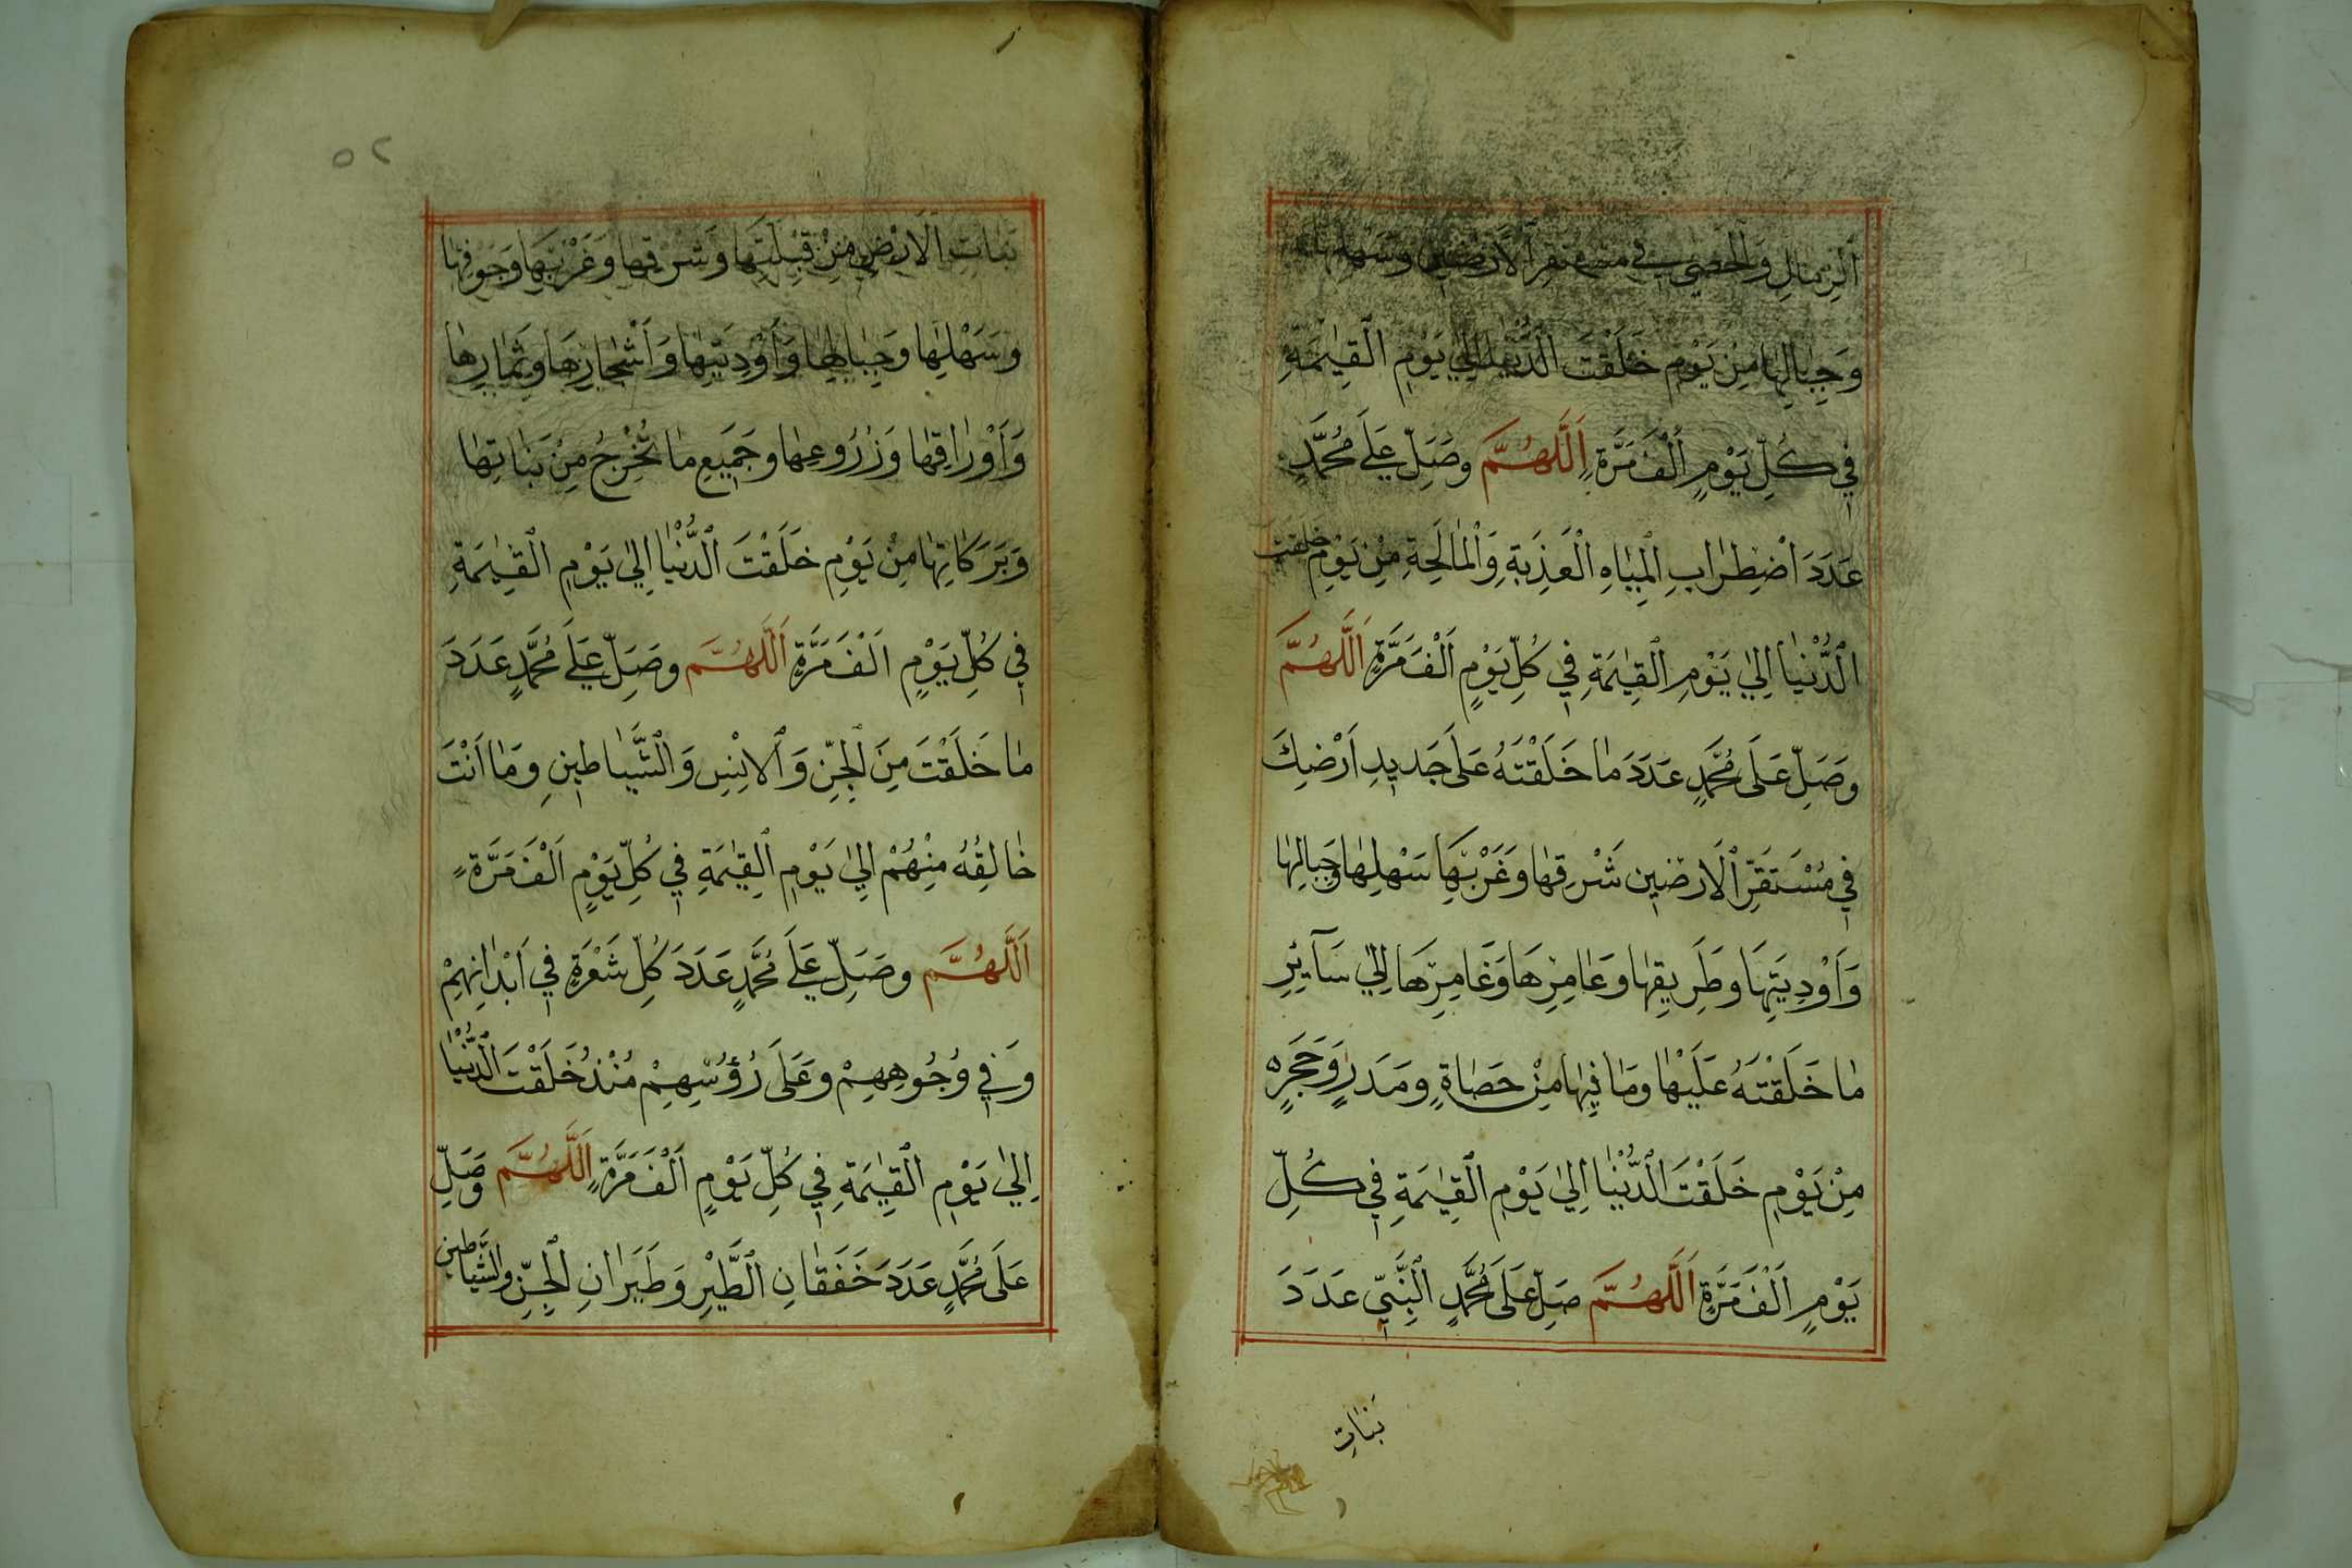 اَلرِّمَالِ وَالْحَصٰى فِي مُسْتَقَرِّ الْاَرَضِيْنَ وَسَهْلِهَا
وَجِبَالِهَا مِنْ يَوْمِ خَلَقْتَ الدُّنْيَا اِلٰي يَوْمِ الْقِيٰمَةِ
فِي كُلِّ يَوْمٍ اَلْفَ مَرَّةٍ اَللّٰهُمَّ وَصَلِّ عَلَى مُحَمَّدٍ
عَدَدَ اضْطِرَابِ الْمِيَاهِ الْعَذِبَةِ وَالْمَالِحَةِ مِنْ يَوْمِ خَلَقْتَ
الدُّنْيَا اِلٰي يَوْمِ الْقِيٰمَةِ فِي كُلِّ يَوْمٍ اَلْفَ مَرَّةٍ اَللّٰهُمَّ
وَصَلِّ عَلَى مُحَمَّدٍ عَدَدَ مَا خَلَقْتَهُ عَلَى جَدِيدِ اَرْضِكَ
فِي مُسْتَقَرِّ الْاَرَضِيْنَ شَرْقِهَا وَغَرْبِهَا سَهْلِهَا وَجِبَالِهَا
وَاَوْدِيَتِهَا وَطَرِيقِهَا وَعَامِرِهَا وَغَامِرِهَا اِلٰي سَآئِرِ
مَا خَلَقْتَهُ عَلَيْهَا وَمَا فِيهَا مِنْ حَصَاةٍ وَمَدَرٍ وَحَجَرٍ
مِنْ يَوْمِ خَلَقْتَ الدُّنْيَا اِلٰي يَوْمِ الْقِيٰمَةِ فِي كُلِّ
يَوْمٍ اَلْفَ مَرَّةٍ اَللّٰهُمَّ صَلِّ عَلَى مُحَمَّدٍ النَّبِيِّ عَدَدَ
نَبَاتِ
٥٢
نَبَاتِ الْاَرْضِ مِنْ قِبْلَتِهَا وَشَرْقِهَا وَغَرْبِهَا وَجَوْفِهَا
وَسَهْلِهَا وَجِبَالِهَا وَاَوْدِيَتِهَا وَاَشْجَارِهَا وَثِمَارِهَا
وَاَوْرَاقِهَا وَزُرُوعِهَا وَجَمِيعِ مَا تُخْرِجُ مِنْ نَبَاتِهَا
وَبَرَكَاتِهَا مِنْ يَوْمِ خَلَقْتَ الدُّنْيَا اِلٰي يَوْمِ الْقِيٰمَةِ
فِي كُلِّ يَوْمٍ اَلْفَ مَرَّةٍ اَللّٰهُمَّ وَصَلِّ عَلَى مُحَمَّدٍ عَدَدَ
مَا خَلَقْتَ مِنَ الْجِنِّ وَالْاِنْسِ وَالشَّيَاطِينِ وَمَا اَنْتَ
خَالِقُهُ مِنْهُمْ اِلٰي يَوْمِ الْقِيٰمَةِ فِي كُلِّ يَوْمٍ اَلْفَ مَرَّةٍ
اَللّٰهُمَّ وَصَلِّ عَلَى مُحَمَّدٍ عَدَدَ كُلِّ شَعْرَةٍ فِي اَبْدَانِهِمْ
وَفِي وُجُوهِهِمْ وَعَلَى رُؤُسِهِمْ مُنْذُ خَلَقْتَ الدُّنْيَا
اِلٰي يَوْمِ الْقِيٰمَةِ فِي كُلِّ يَوْمٍ اَلْفَ مَرَّةٍ اَللّٰهُمَّ وَصَلِّ
عَلَى مُحَمَّدٍ عَدَدَ خَفَقَانِ الطَّيْرِ وَطَيَرَانِ الْجِنِّ وَالشَّيَاطِينِ